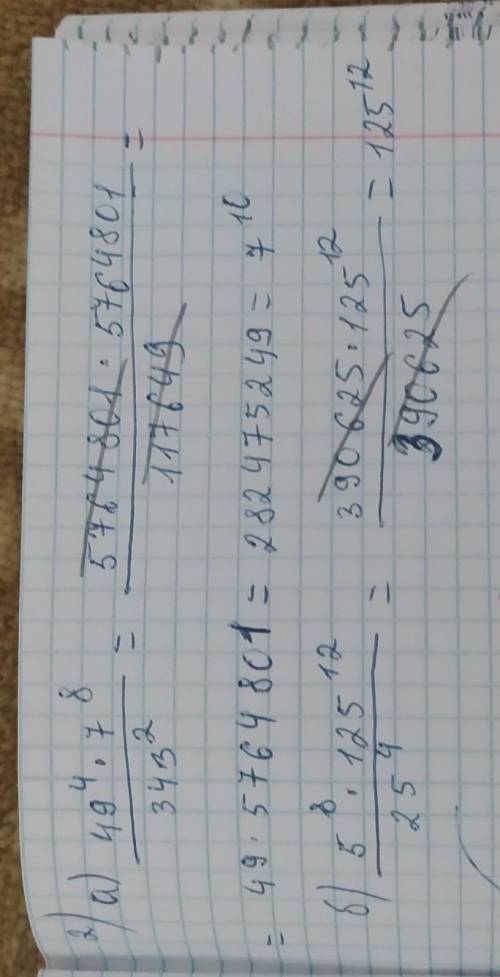 2)
а) 49⁴ · 7⁸ / 343² = 5764801 · 5764801 / 117649 =
= 49 · 5764801 = 282475249 = 7¹⁰
б) 5⁸ · 125¹² / 25⁴ = 390625 · 125¹² / 390625 = 125¹²